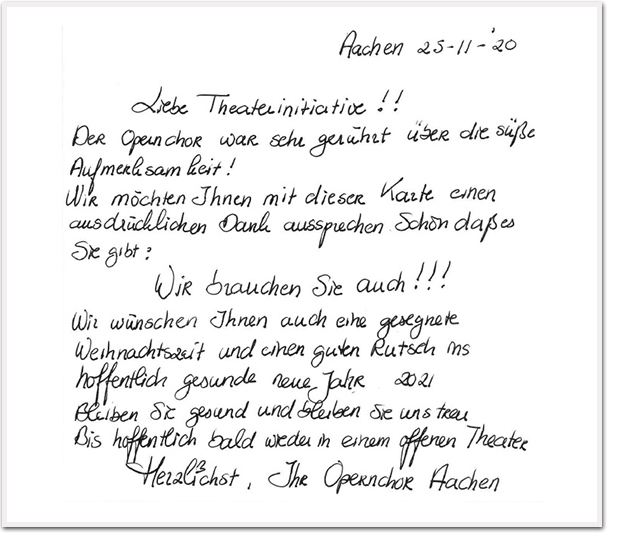 Aachen 25-11-'20
Liebe Theaterinitiative!!
Der Opernchor war sehr gerührt über die süße
Aufmerksamkeit!
Wir möchten Ihnen mit dieser Karte einen
ausdrücklichen Dank aussprechen Schön daß es
Sie gibt:
Wir brauchen Sie auch!!!
Wir wünschen Ihnen auch eine gesegnete
Weihnachtszeit und einen guten Rutsch ins
hoffentlich gesunde neue Jahr 2021
Bleiben Sie gesund und bleiben Sie uns treu
Bis hoffentlich bald wieder in einem offenen Theater
Herzlichst, Ihr Opernchor Aachen